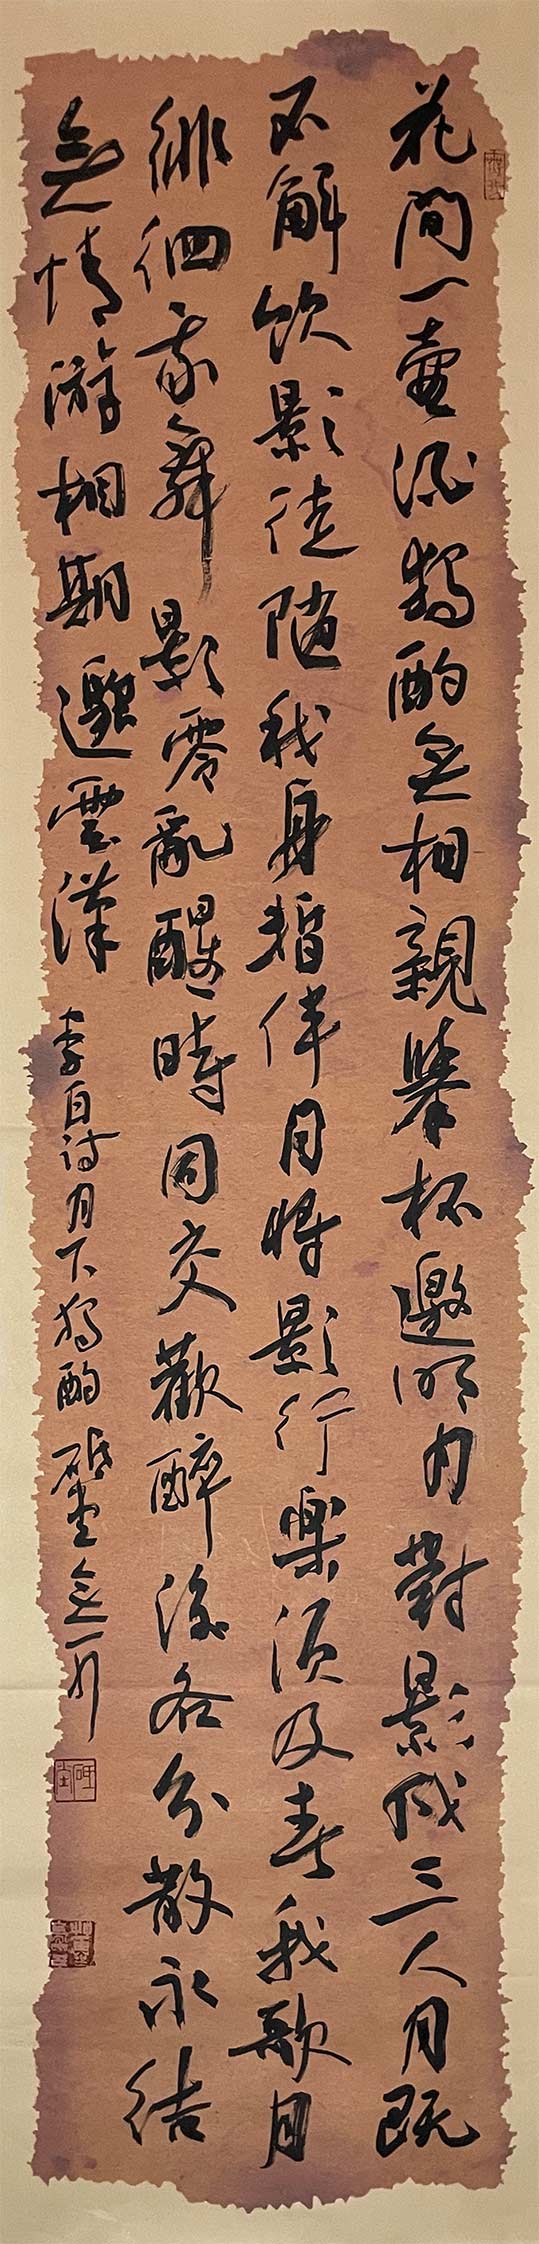 花間一壺酒獨酌無相親舉杯邀明月對影成三人月既
不解飲影徒隨我身暫伴月將影行樂須及春我歌月
徘徊我舞影零亂醒時同交歡醉後各分散永結
無情游相期邈雲漢 李白詩月下獨酌